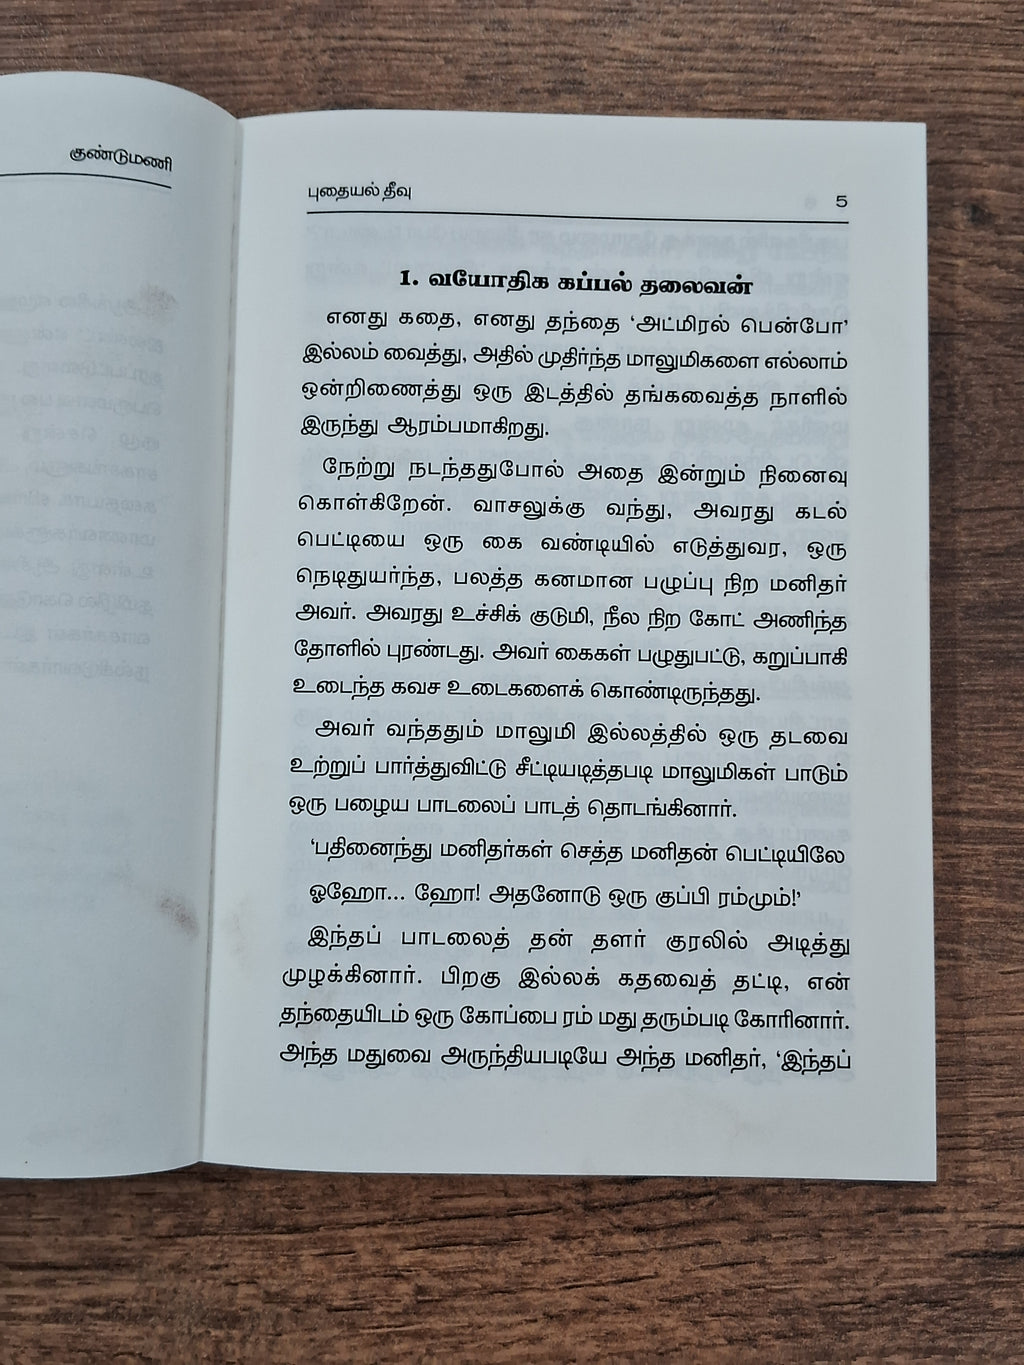 குண்டுமணி
புதையல் தீவு 5
1. வயோதிக கப்பல் தலைவன்
எனது கதை, எனது தந்தை ‘அட்மிரல் பென்போ’
இல்லம் வைத்து, அதில் முதிர்ந்த மாலுமிகளை எல்லாம்
ஒன்றிணைத்து ஒரு இடத்தில் தங்கவைத்த நாளில்
இருந்து ஆரம்பமாகிறது.
நேற்று நடந்ததுபோல் அதை இன்றும் நினைவு
கொள்கிறேன். வாசலுக்கு வந்து, அவரது கடல்
பெட்டியை ஒரு கை வண்டியில் எடுத்துவர, ஒரு
நெடிதுயர்ந்த, பலத்த கனமான பழுப்பு நிற மனிதர்
அவர். அவரது உச்சிக் குடுமி, நீல நிற கோட் அணிந்த
தோளில் புரண்டது. அவர் கைகள் பழுதுபட்டு, கறுப்பாகி
உடைந்த கவச உடைகளைக் கொண்டிருந்தது.
அவர் வந்ததும் மாலுமி இல்லத்தில் ஒரு தடவை
உற்றுப் பார்த்துவிட்டு சீட்டியடித்தபடி மாலுமிகள் பாடும்
ஒரு பழைய பாடலைப் பாடத் தொடங்கினார்.
‘பதினைந்து மனிதர்கள் செத்த மனிதன் பெட்டியிலே
ஓஹோ... ஹோ! அதனோடு ஒரு குப்பி ரம்மும்!’
இந்தப் பாடலைத் தன் தளர் குரலில் அடித்து
முழக்கினார். பிறகு இல்லக் கதவைத் தட்டி, என்
தந்தையிடம் ஒரு கோப்பை ரம் மது தரும்படி கோரினார்.
அந்த மதுவை அருந்தியபடியே அந்த மனிதர், ‘இந்தப்